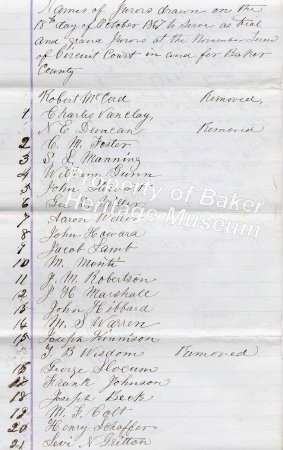 Names of Jurors drawn on the
18th day of October 1867 to serve as trial
and grand Jurors at the November Term
of Circuit Court in and for Baker
County
Robert McCord Removed.
1 Charles Vanclay,
N. E. Duncan Removed
2 C. M. Foster
3 S. L. Manning
4 William Gunn
5 John
6 Geo
7 Aaron
8 John Howard
9 Jacob Lamb
10 M.
11 J. M. Robertson
12 H Marshall
13 John Hibbard
14 M. S Warren
15 Joseph Kinnison
T. B Wisdom Removed
16 George Slocum
17 Frank Johnson
18 Joseph Beck
19 M. F. Colt
20 Henry Schaffer
21 Levi N Gritton
Property of Baker
Heritage Museum